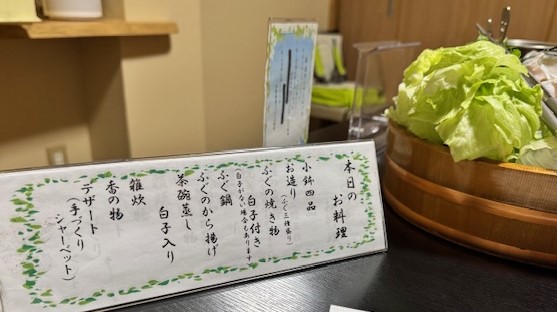 本日の
お料理
小鉢四品
お造り(ふぐ三種盛り)
ふぐの焼き物
白子付き
(白子がない場合もあります)
ふぐ鍋
ふぐのから揚げ
茶碗蒸し
白子入り
雑炊
香の物
デザート
(手づくり
シャーベット)